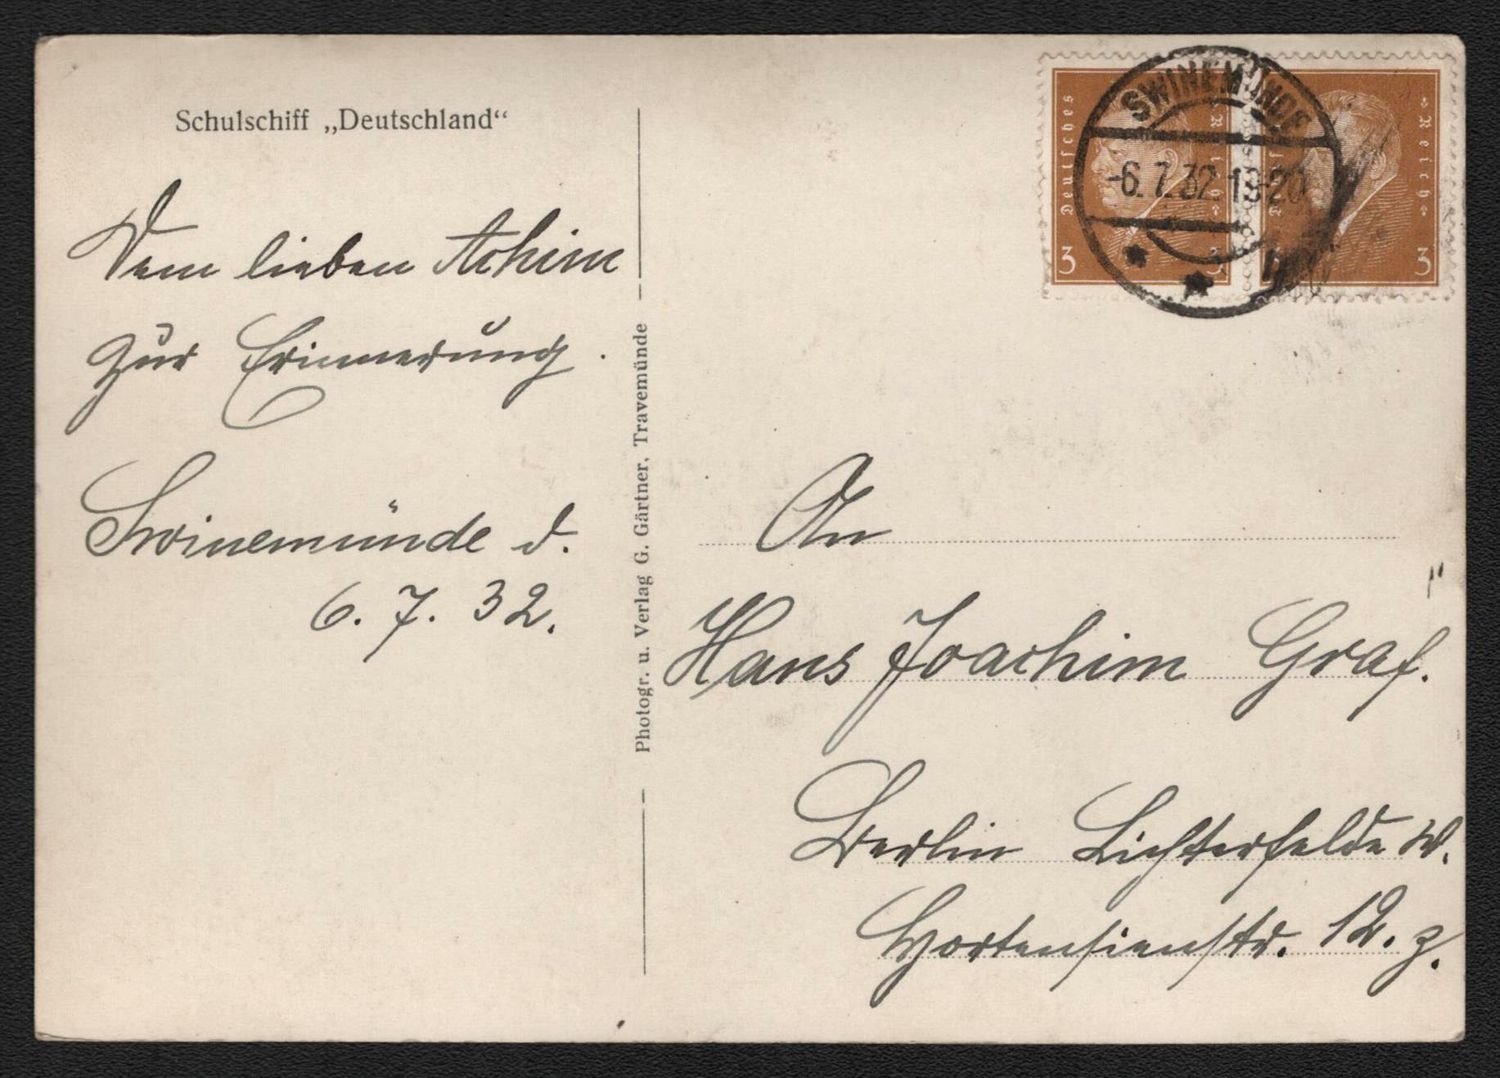 Schulschiff „Deutschland“
Dem lieben Achim
zur Erinnerung.
Swinemünde d.
6. 7. 32.
Photogr. u. Verlag G. Gärtner, Travemünde
Deutsches
Reich
3
3
Reich
3
SWINEMÜNDE
-6.7.32.19-20
An
Hans Joachim Graf.
Berlin Lichterfelde W.
Hortensienstr. 12. z.